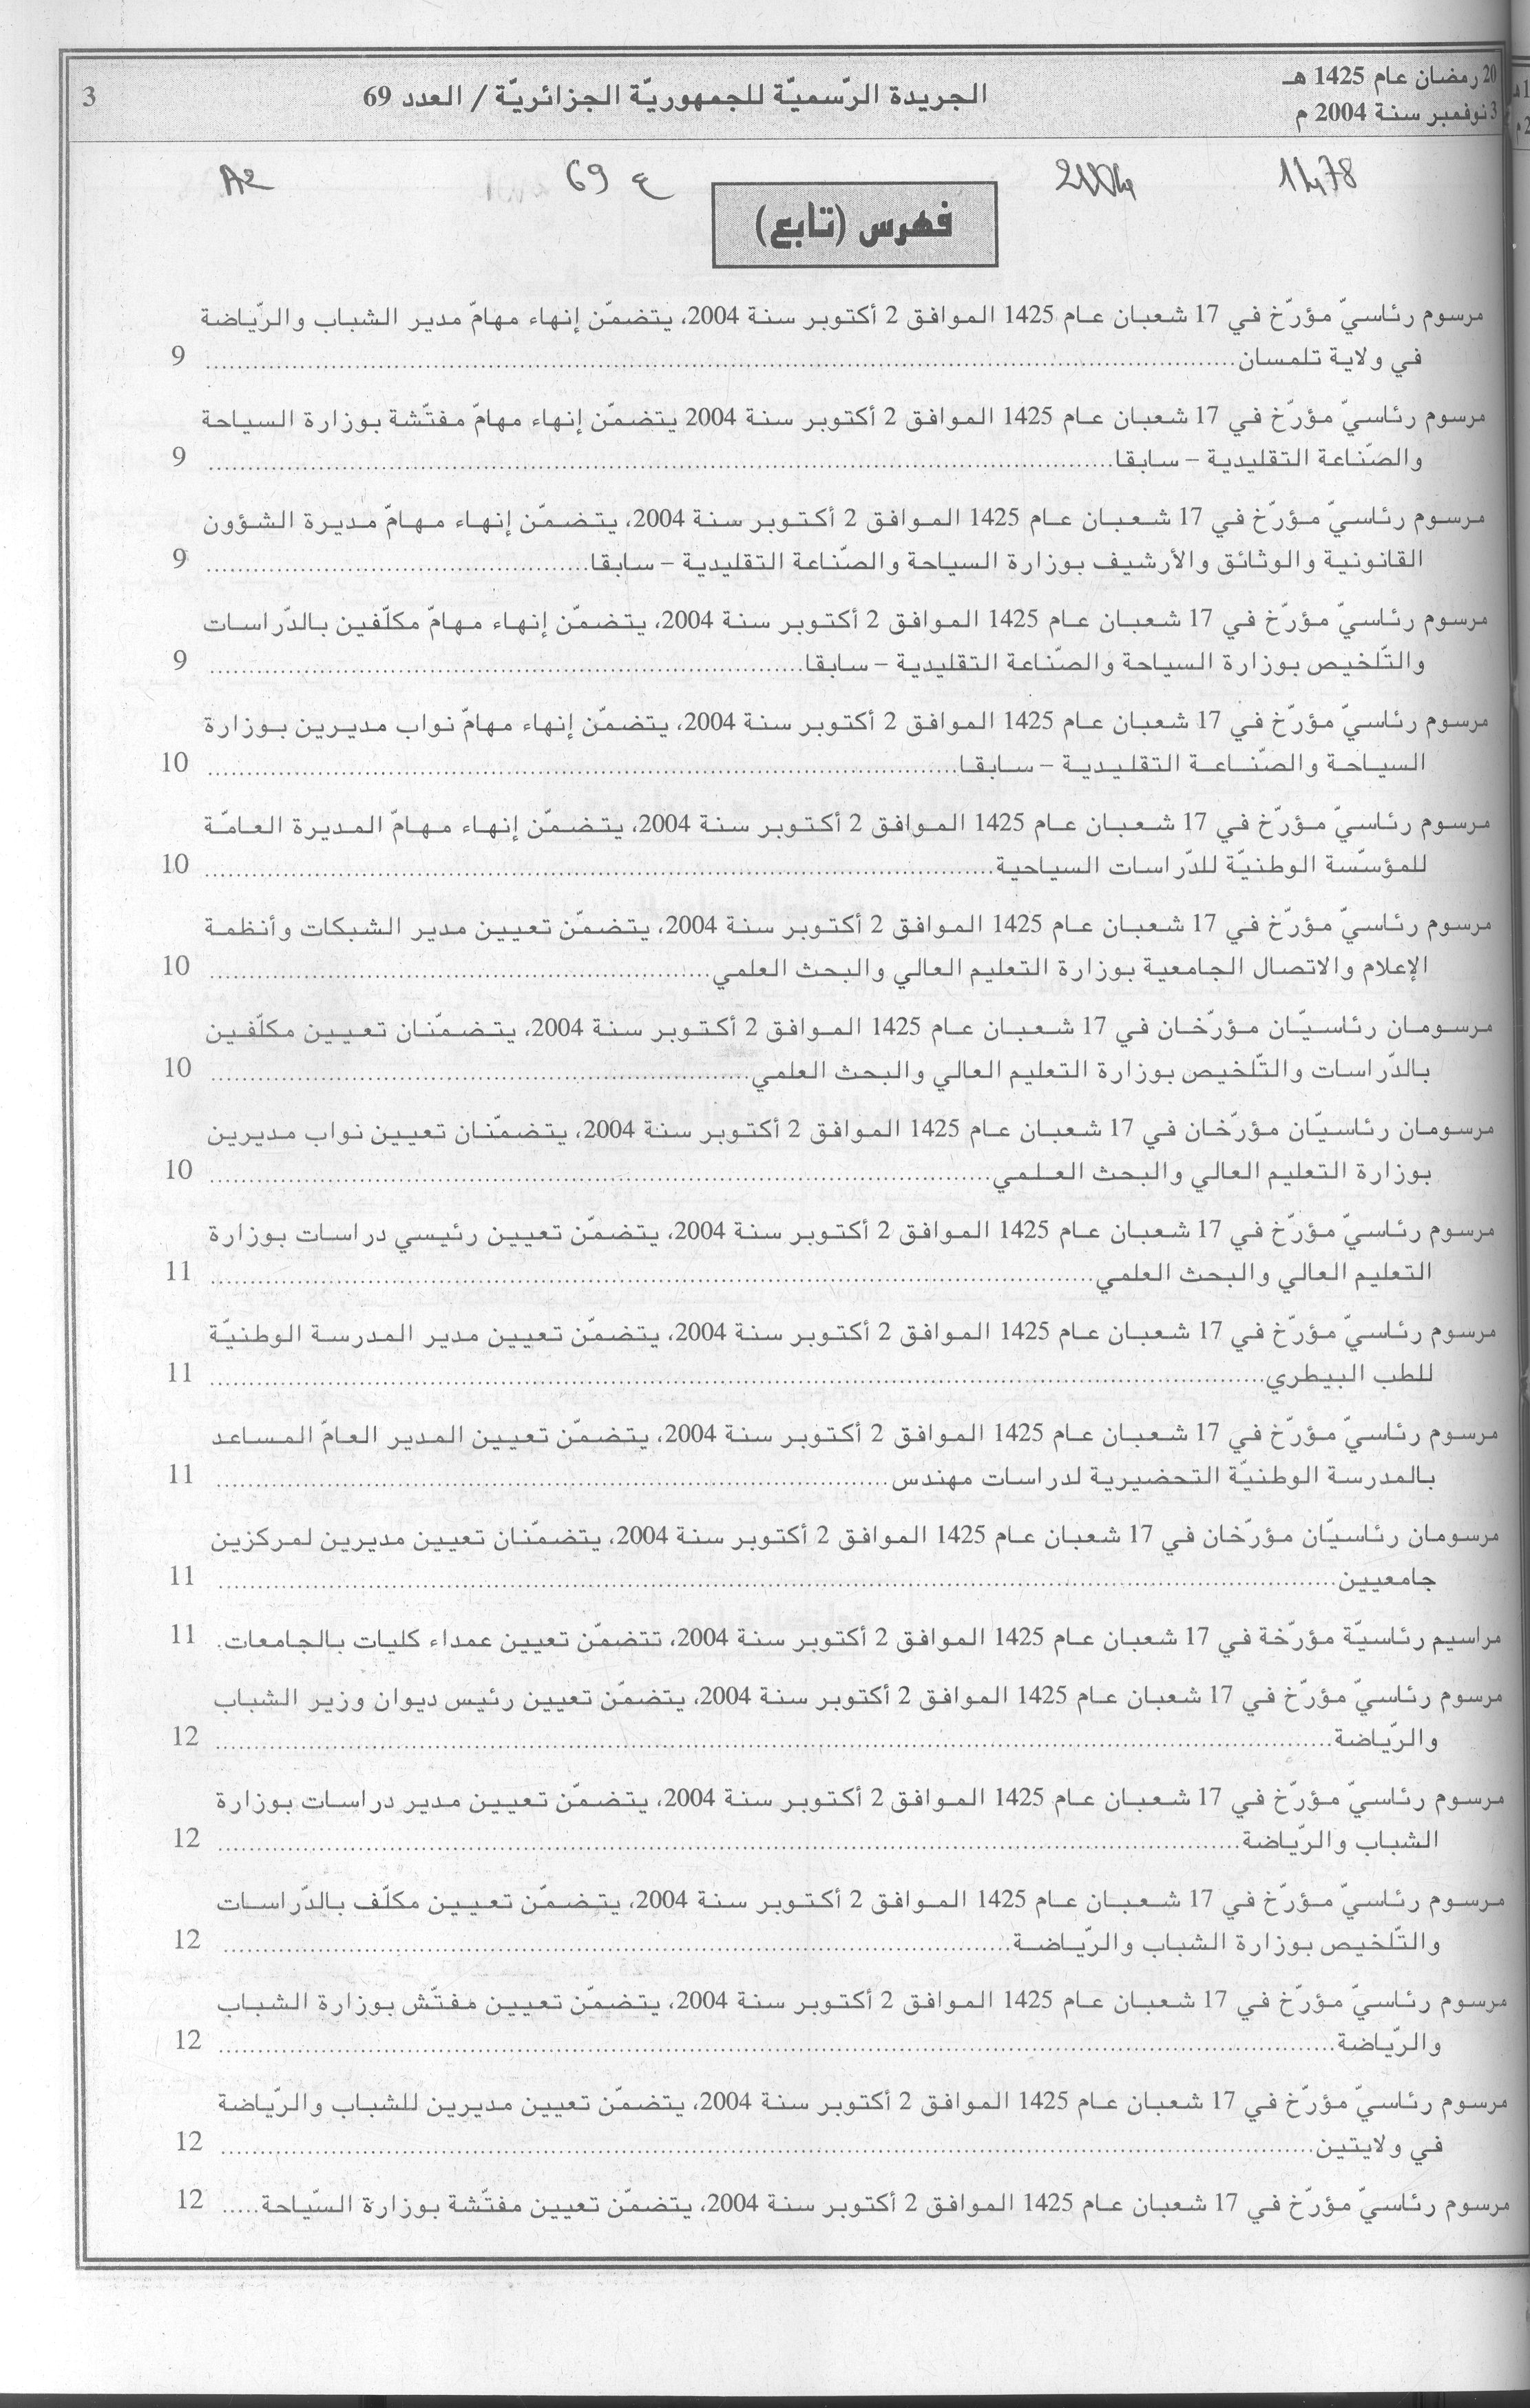 20 رمضان عام 1425 هـ
3 نوفمبر سنة 2004 م
الجريدة الرّسميّة للجمهوريّة الجزائريّة / العدد 69
3
1478
2004
ع 69
A2
فهرس (تابع)
مرسوم رئاسيّ مؤرّخ في 17 شعبان عام 1425 الموافق 2 أكتوبر سنة 2004، يتضمّن إنهاء مهامّ مدير الشباب والرّياضة
في ولاية تلمسان ........ 9
مرسوم رئاسيّ مؤرّخ في 17 شعبان عام 1425 الموافق 2 أكتوبر سنة 2004 يتضمّن إنهاء مهامّ مفتّشة بوزارة السياحة
والصّناعة التقليدية – سابقا ........ 9
مرسوم رئاسيّ مؤرّخ في 17 شعبان عام 1425 الموافق 2 أكتوبر سنة 2004، يتضمّن إنهاء مهامّ مديرة الشؤون
القانونية والوثائق والأرشيف بوزارة السياحة والصّناعة التقليدية – سابقا ........ 9
مرسوم رئاسيّ مؤرّخ في 17 شعبان عام 1425 الموافق 2 أكتوبر سنة 2004، يتضمّن إنهاء مهامّ مكلّفين بالدّراسات
والتّلخيص بوزارة السياحة والصّناعة التقليدية – سابقا ........ 9
مرسوم رئاسيّ مؤرّخ في 17 شعبان عام 1425 الموافق 2 أكتوبر سنة 2004، يتضمّن إنهاء مهامّ نواب مديرين بوزارة
السياحة والصّناعة التقليدية – سابقا ........ 10
مرسوم رئاسيّ مؤرّخ في 17 شعبان عام 1425 الموافق 2 أكتوبر سنة 2004، يتضمّن إنهاء مهامّ المديرة العامّة
للمؤسّسة الوطنيّة للدّراسات السياحية ........ 10
مرسوم رئاسيّ مؤرّخ في 17 شعبان عام 1425 الموافق 2 أكتوبر سنة 2004، يتضمّن تعيين مدير الشبكات وأنظمة
الإعلام والاتصال الجامعية بوزارة التعليم العالي والبحث العلمي ........ 10
مرسومان رئاسيّان مؤرّخان في 17 شعبان عام 1425 الموافق 2 أكتوبر سنة 2004، يتضمّنان تعيين مكلّفين
بالدّراسات والتّلخيص بوزارة التعليم العالي والبحث العلمي ........ 10
مرسومان رئاسيّان مؤرّخان في 17 شعبان عام 1425 الموافق 2 أكتوبر سنة 2004، يتضمّنان تعيين نواب مديرين
بوزارة التعليم العالي والبحث العلمي ........ 10
مرسوم رئاسيّ مؤرّخ في 17 شعبان عام 1425 الموافق 2 أكتوبر سنة 2004، يتضمّن تعيين رئيسي دراسات بوزارة
التعليم العالي والبحث العلمي ........ 11
مرسوم رئاسيّ مؤرّخ في 17 شعبان عام 1425 الموافق 2 أكتوبر سنة 2004، يتضمّن تعيين مدير المدرسة الوطنيّة
للطب البيطري ........ 11
مرسوم رئاسيّ مؤرّخ في 17 شعبان عام 1425 الموافق 2 أكتوبر سنة 2004، يتضمّن تعيين المدير العامّ المساعد
بالمدرسة الوطنيّة التحضيرية لدراسات مهندس ........ 11
مرسومان رئاسيّان مؤرّخان في 17 شعبان عام 1425 الموافق 2 أكتوبر سنة 2004، يتضمّنان تعيين مديرين لمركزين
جامعيين ........ 11
مراسيم رئاسيّة مؤرّخة في 17 شعبان عام 1425 الموافق 2 أكتوبر سنة 2004، تتضمّن تعيين عمداء كليات بالجامعات. 11
مرسوم رئاسيّ مؤرّخ في 17 شعبان عام 1425 الموافق 2 أكتوبر سنة 2004، يتضمّن تعيين رئيس ديوان وزير الشباب
والرّياضة ........ 12
مرسوم رئاسيّ مؤرّخ في 17 شعبان عام 1425 الموافق 2 أكتوبر سنة 2004، يتضمّن تعيين مدير دراسات بوزارة
الشباب والرّياضة ........ 12
مرسوم رئاسيّ مؤرّخ في 17 شعبان عام 1425 الموافق 2 أكتوبر سنة 2004، يتضمّن تعيين مكلّف بالدّراسات
والتّلخيص بوزارة الشباب والرّياضة ........ 12
مرسوم رئاسيّ مؤرّخ في 17 شعبان عام 1425 الموافق 2 أكتوبر سنة 2004، يتضمّن تعيين مفتّش بوزارة الشباب
والرّياضة ........ 12
مرسوم رئاسيّ مؤرّخ في 17 شعبان عام 1425 الموافق 2 أكتوبر سنة 2004، يتضمّن تعيين مديرين للشباب والرّياضة
في ولايتين ........ 12
مرسوم رئاسيّ مؤرّخ في 17 شعبان عام 1425 الموافق 2 أكتوبر سنة 2004، يتضمّن تعيين مفتّشة بوزارة السّياحة ..... 12